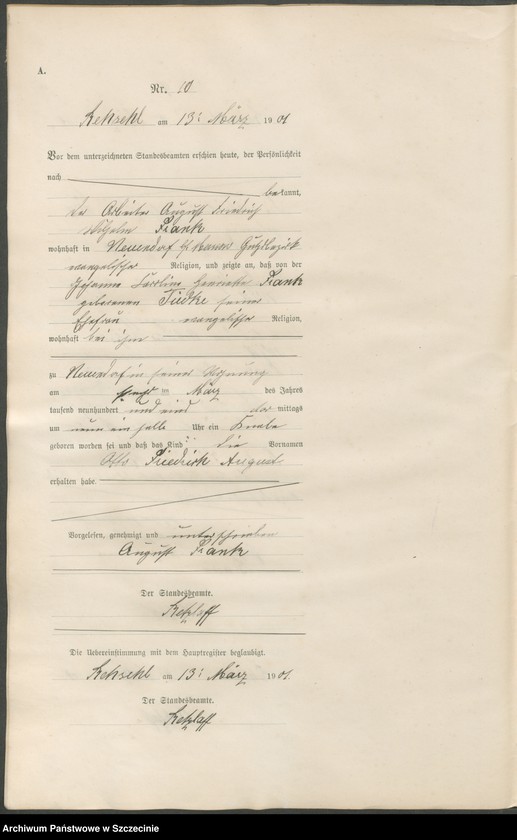 A.
Nr. 10
am 13. März 1901
Vor dem unterzeichneten Standesbeamten erschien heute, der Persönlichkeit
nach
bekannt,
der Arbeiter August Friedrich
Wilhelm Frank
wohnhaft in Neuendorf Gutsbezirk
evangelischer Religion, und zeigte an, daß von der
Johanna Karoline Henriette Frank
geborenen Tiedke seiner
Ehefrau evangelischer Religion,
wohnhaft bei ihm
zu Neuendorf in seiner Wohnung
am im März des Jahres
tausend neunhundert und eins vormittags
um neun ein halb Uhr ein Knabe
geboren worden sei und daß das Kind die Vornamen
Otto Friedrich August
erhalten habe.
Vorgelesen, genehmigt und unterschrieben
August Frank
Der Standesbeamte.
Retzlaff
Die Uebereinstimmung mit dem Hauptregister beglaubigt.
am 13. März 1901.
Der Standesbeamte.
Retzlaff
Archiwum Państwowe w Szczecinie